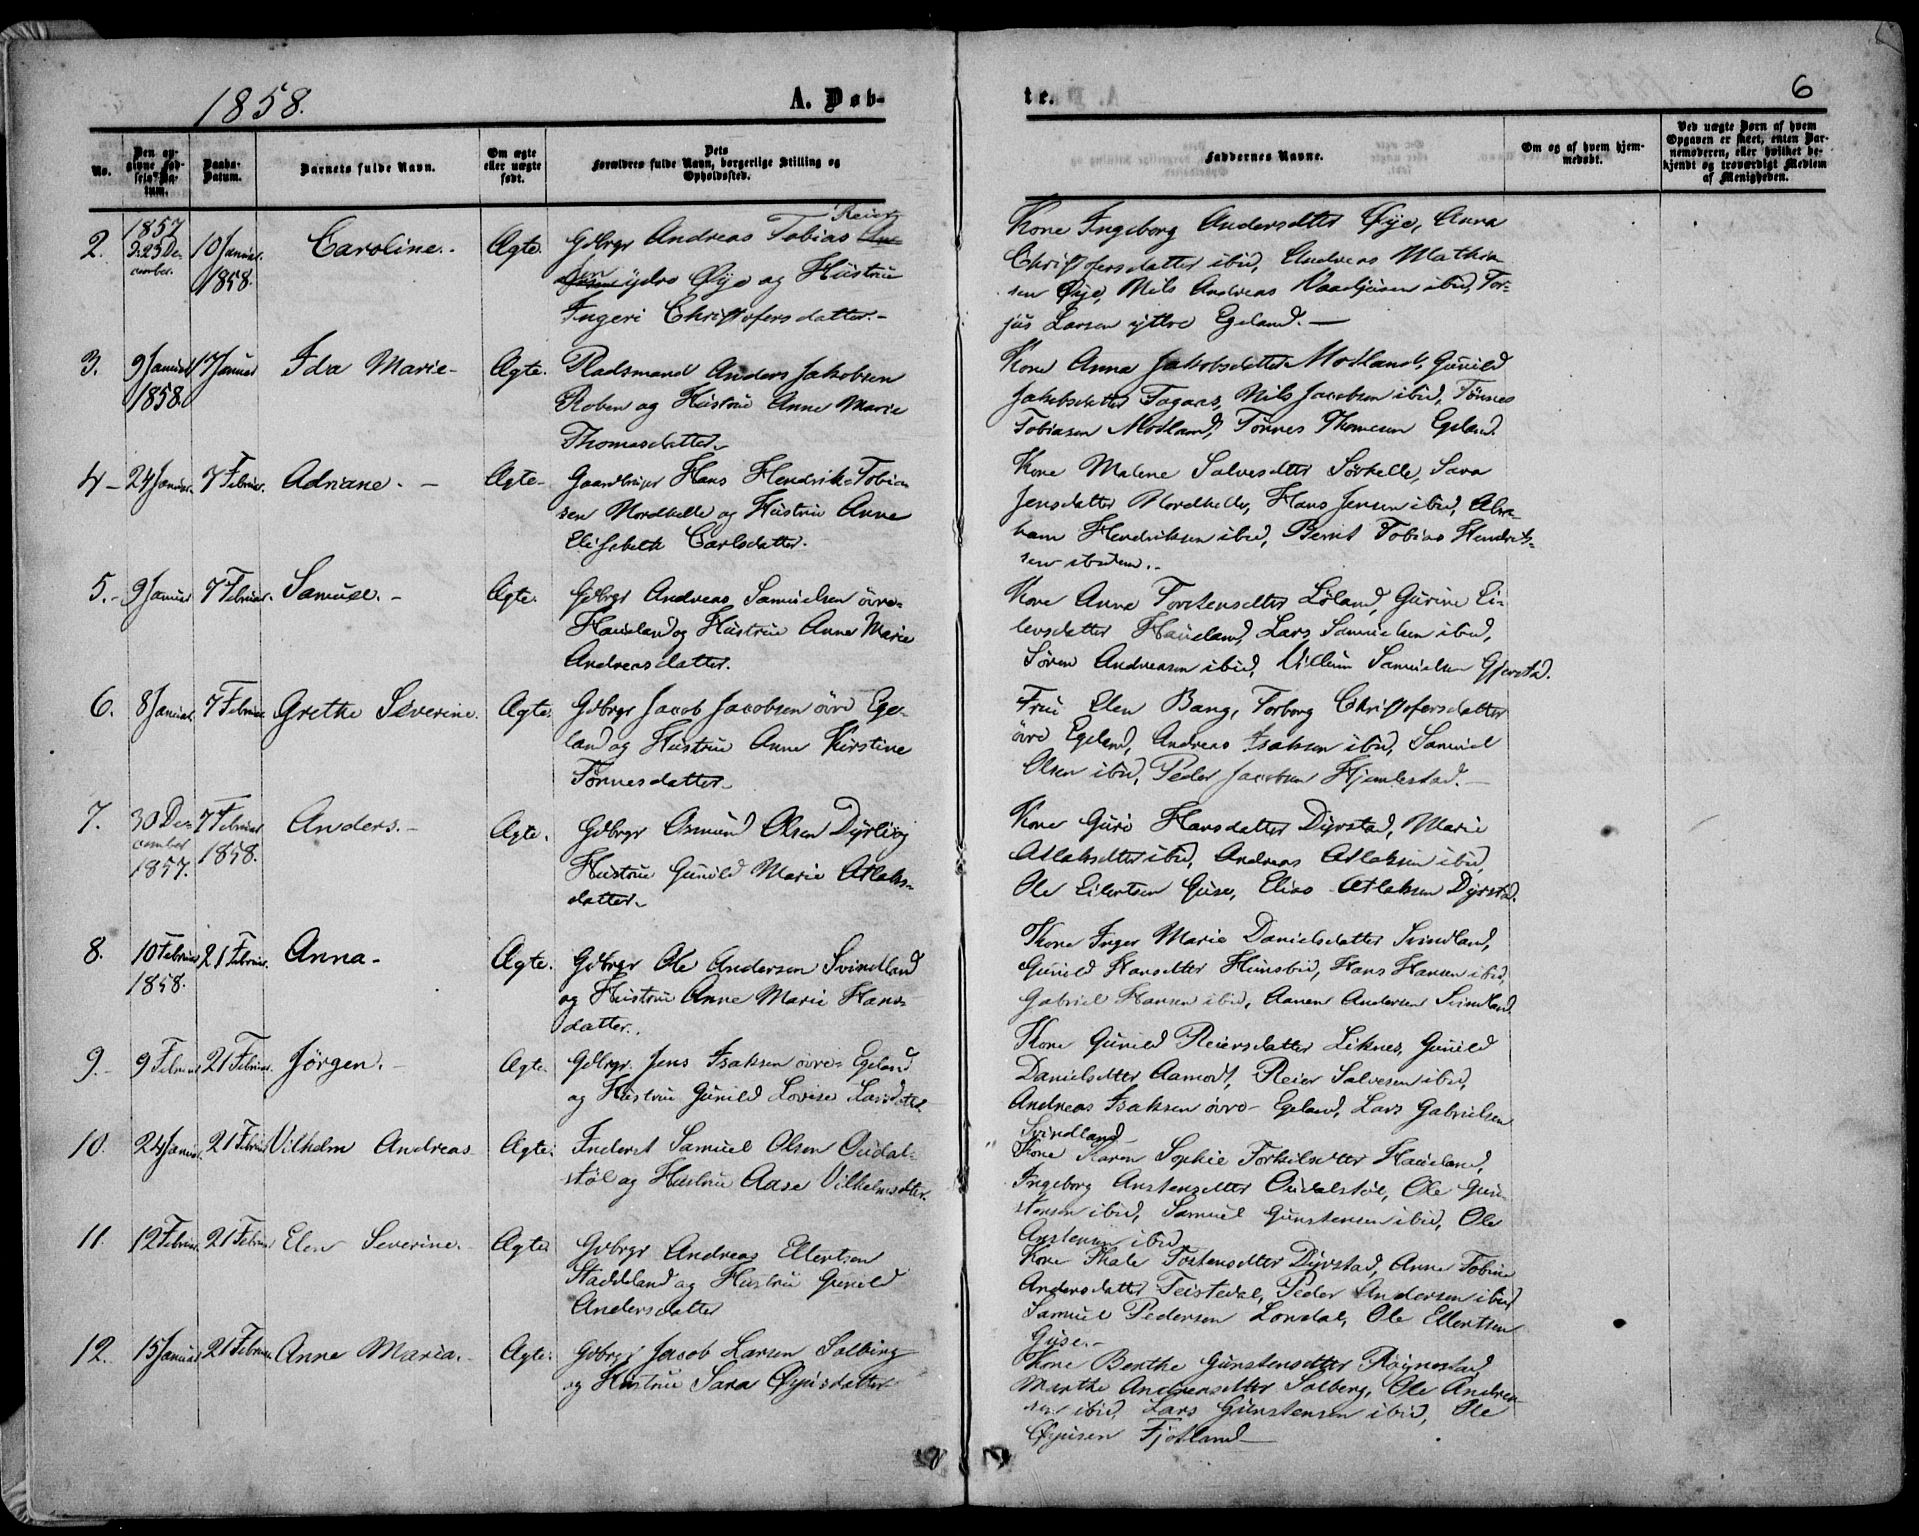 1858.
A. Døb-
te.
6
No.
Den opgivne Fødsels-Datum.
Daabs-Datum.
Barnets fulde Navn.
Om ægte eller uægte født.
Dets Forældres fulde Navn, borgerlige Stilling og Opholdssted.
Faddernes Navne.
Om og af hvem hjemmedøbt.
Ved uægte Børn af hvem Opgaven er skeet, enten Barnemoderen, eller hvilket bekjendt og troværdigt Medlem af Menigheden.
2. 1857 23 De- 10 Januar. Caroline. Ægte. Gdbrgr Andreas Tobias Reier
cember. 1858. sen ydre Øye og Hustrue
Ingeri Christofersdatter.-
Kone Ingeborg Andersdtter Øye, Anna
Christofersdatter ibid, Andreas Mathia
sen Øye, Nils Andreas ibid, Tor-
jus Larsen yttre Egeland.-
3. 9 Januar 17 Januar Ida Marie- Ægte. Radsmand Anders Jakobsen
1858. Roben og Hustrue Anne Marie
Thomasdatter.
Kone Anna Jakobsdatter Modland, Gunild
Jakobsdatter Fagaas, Nils Jacobsen ibid, Tønnes
Tobiasen Modland, Tønnes Thomesen Egeland.
4- 24 Januar. 7 Februar. Adriane.- Ægte- Gaardbruger Hans Hendrik Tobia
sen Nordhelle og Hustrue Anne
Elisabeth Carlsdatter.
Kone Malene Salvesdtter Sørhelle, Sara
Jensdatter Nordhelle, Hans Jensen ibid, Abra-
ham Hendriksen ibid, Bernt Tobias Hendrik-
sen ibidem.-
5.- 9 Januar 7 Februar. Samuel.- Ægte. Gdbrgr Andreas Samuelsen øvre-
Haueland og Hustrue Anne Marie
Andreasdatter.
Kone Anne Torstensdtter Løland, Gurine Ei-
lersdatter Haueland, Lars Samuelsen ibid,
Søren Andreasen ibid, Villum Samuelsen Gjerstad.
6. 8 Januar. 7 Februar Grethe Severine. Ægte. Gdbrgr Jacob Jacobsen øvre Ege-
land og Hustrue Anne Kirstine
Tønnesdatter.
Frue Elen Bang, Torborg Christofersdatter
øvre Egeland, Andreas Isaksen ibid, Samuel
Olsen ibid, Peder Jacobsen Hjemlestad.-
7. 30 De- 7 Februar Anders.- Ægte. Gdbrgr Osmund Olsen Dyrli og
cember 1858. Hustrue Gunild Marie Atlaks-
1857. datter.
Kone Guri Hansdatter Dyrstad, Marie
Atlaksdtter ibid, Andreas Atlaksen ibid,
Ole Eilertsen Guse, Elias Atlaksen Dyrstad.
8. 10 Februar 21 Februar. Anna- Ægte. Gdbrgr Ole Andersen Svindland
1858. og Hustrue Anne Marie Hans-
datter.
Kone Inger Marie Danielsdatter Svindland,
Gunild Hansdtter Hunsbid, Hans Hansen ibid,
Gabriel Hansen ibid, Aanen Andersen Svindland.
9.- 9 Februar 21 Februar. Jørgen.- Ægte. Gdbrgr. Jens Isaksen øvre Egeland
og Hustrue Gunild Lovise Larsdatter.
Kone Gunild Reiersdatter Liknes, Gunild
Danielsdtter Aamodt, Reier Salvesen ibid,
Andreas Isaksen øvre Egeland, Lars Gabrielsen
Svindland-
10. 24 Januar. 21 Februar Vilhelm Andreas Ægte. Inderst Samuel Olsen Oudal-
støl og Hustrue Aase Vilhelmsdtter.
Kone Karen Sophie Torkilsdtter Haueland,
Ingeborg Anstensdtter Oudalstøl, Ole Gun-
stensen ibid, Samuel Gunstensen ibid, Ole
Anstensen ibid
11. 12 Februar. 21 Februar Elen Severine. Ægte Gdbrgr Andreas Ellertsen
Staddeland og Hustrue Gunild
Andersdatter
Kone Thale Tostensdtter Dyrstad, Anne Tobine
Andersdatter Feistedal, Peder Andersen ibid
Samuel Pedersen Londal, Ole Ellertsen
Guse.-
12. 15 Januar 21 Februar Anne Maria. Ægte. Gdbrgr Jacob Larsen Solberg
og Hustrue Sara Øyusdatter
Kone Berthe Gunstensdtter Røynestad
Marthe Andreasdtter Solberg, Ole Andrea-
sen ibid, Lars Gunstensen ibid, Ole
Øyusen Fjotland-